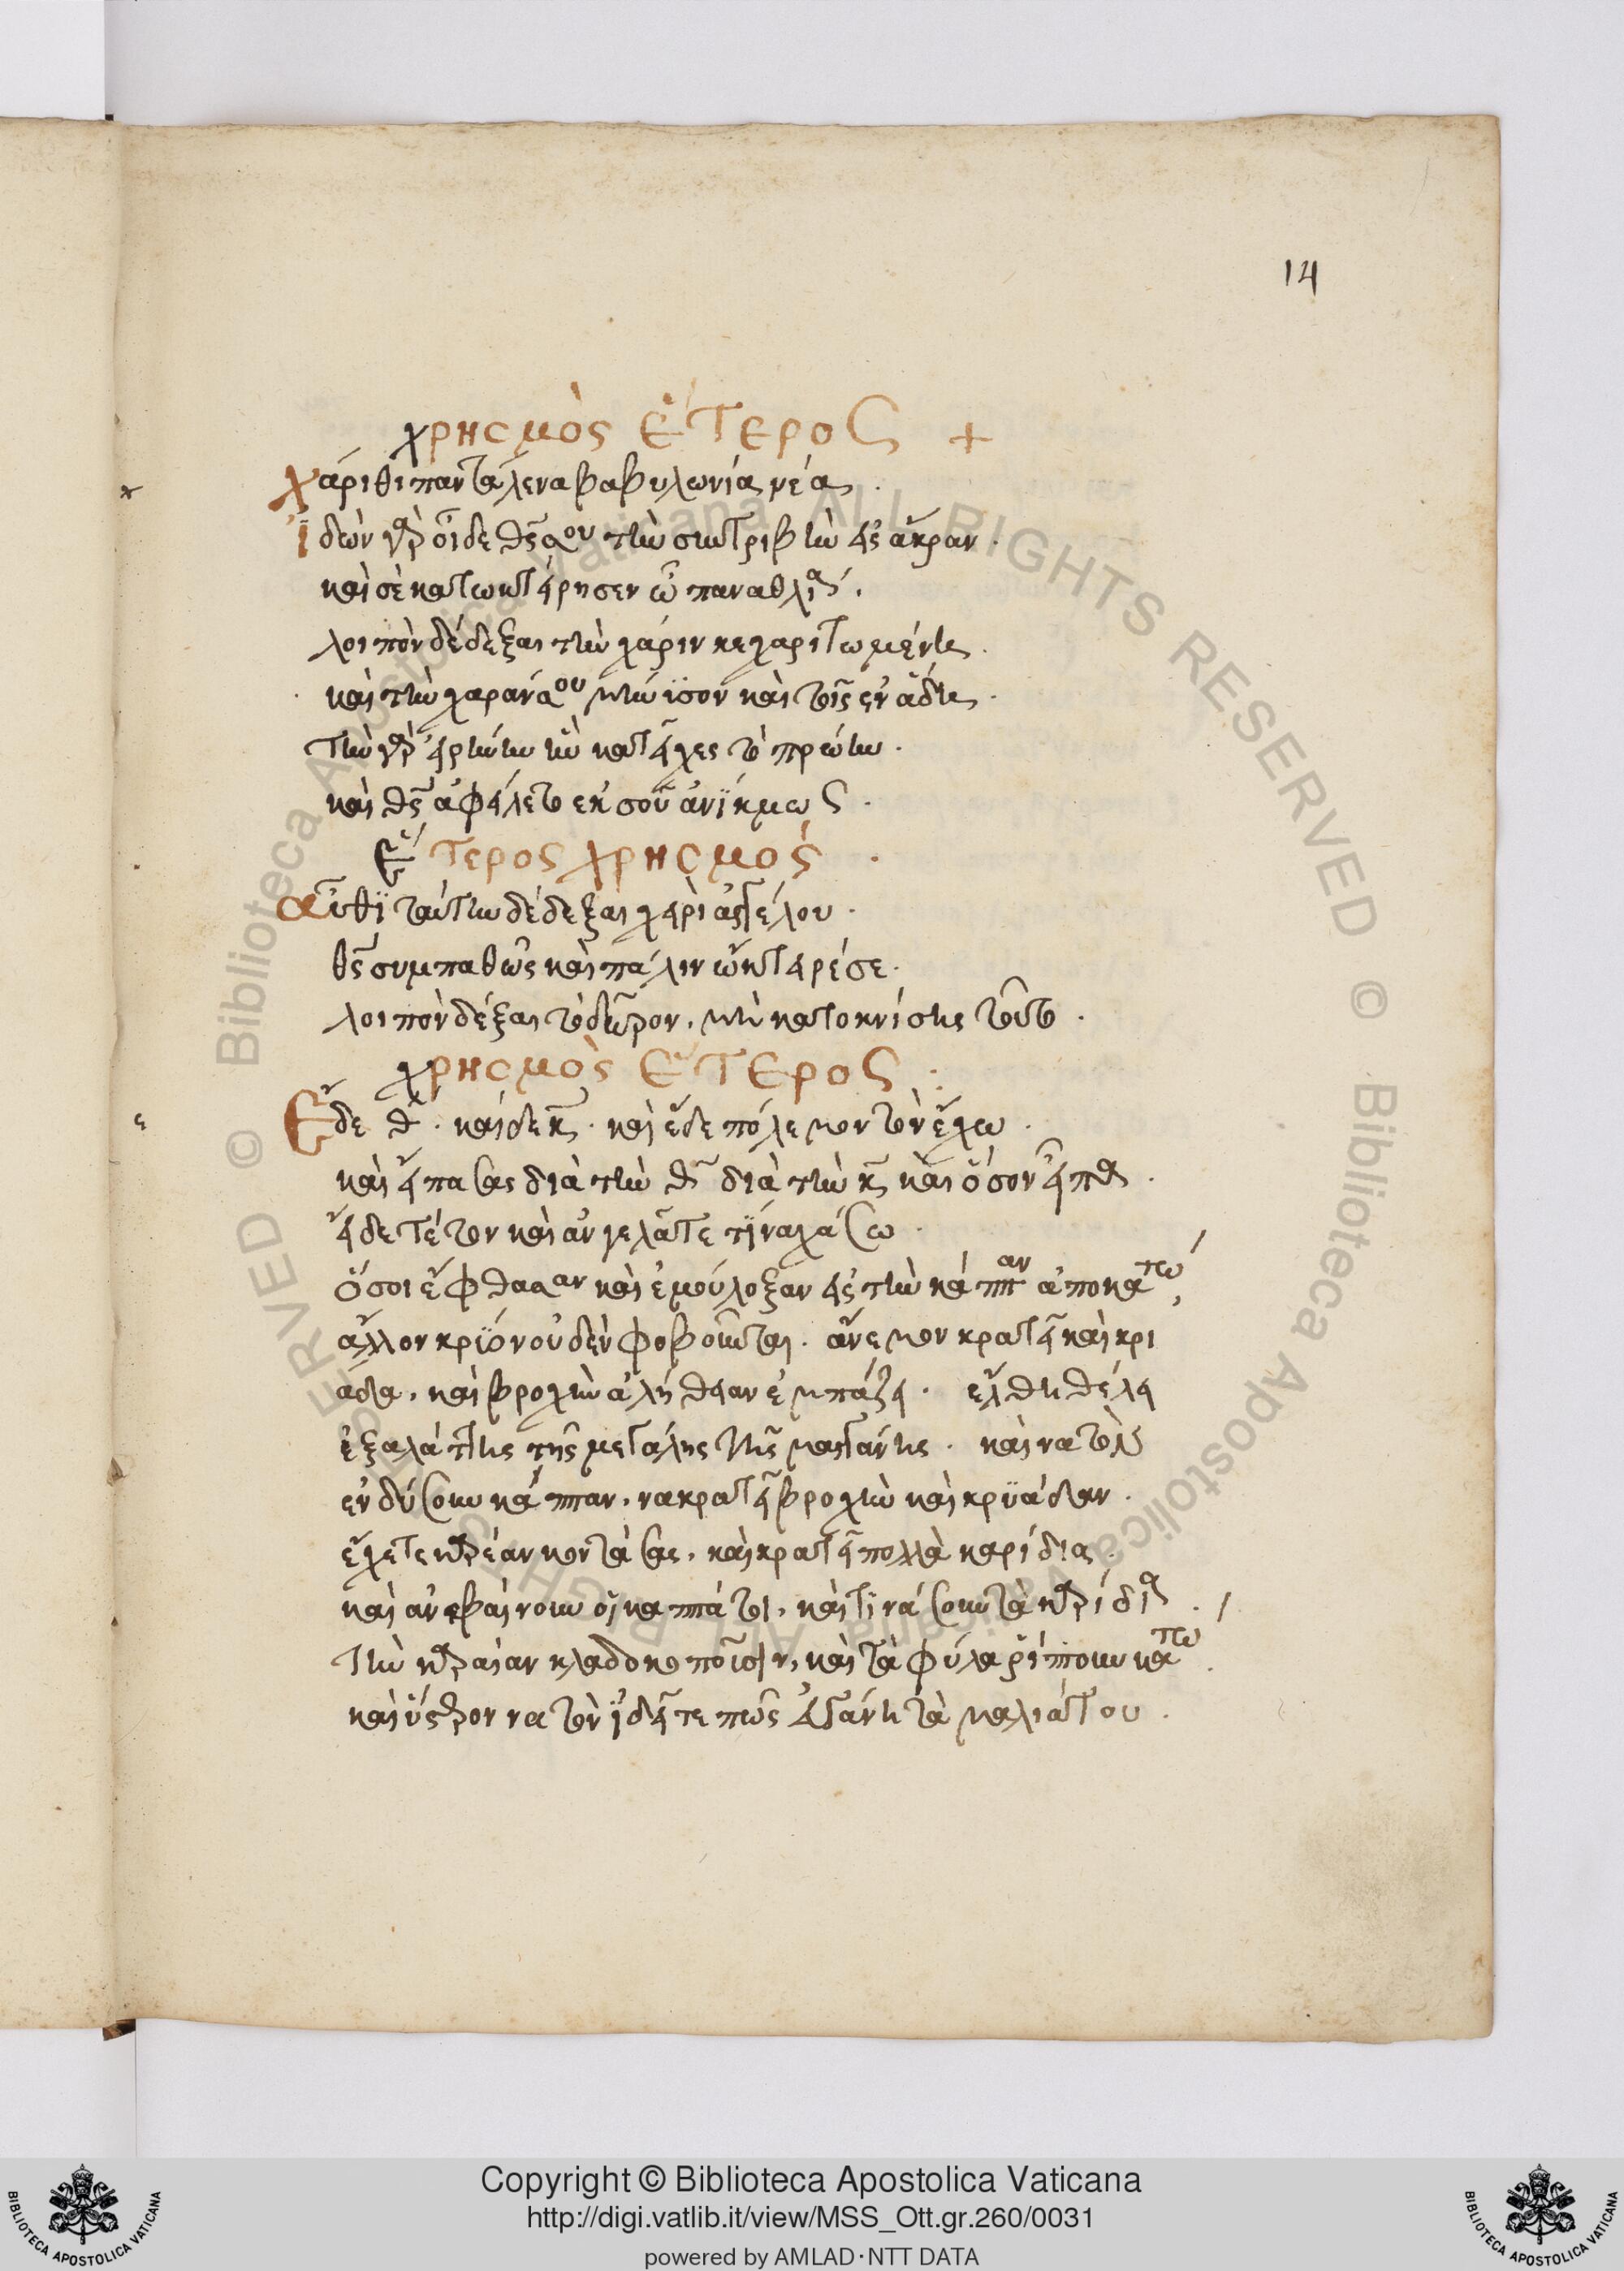 14
χρησμὸς ἕτερος +
χάριθι παντάλενα βαβυλωνία νέα .
ἰδὼν γὰρ οἶδε θς σου τὴν συντριβὴν εἰς ἄκραν .
καὶ σὲ κατωκτείρησεν ὦ παναθλία .
λοιπὸν δέδεξαι τὴν χάριν κεχαριτωμένης .
καὶ τὴν χαρανάσου μὴν ἴσον καὶ τοῖς ἐν ἅδης .
τὴν γὰρ εἰρήνην ἣν κατεῖχες τὸ πρώην .
καὶ θς ἀφείλετο ἐκ σοῦ ἀνίκμως .
ἕτερος χρησμός .
αὖθι ταύτην δέδεξαι χειρὶ ἀγγέλου .
θς συμπαθῶς καὶ πάλιν ὤκτειρέσε .
λοιπὸν δέξαι τὸ δῶρον , μὴ κατοκνίσης τοῦτο .
χρησμὸς ἕτερος :
καὶ ἔδε πόλεμον τὸν ἔχω .
καὶ διὰ τὴν διὰ τὴν καὶ ὅσον
εἴδε τέτον καὶ ἂν γελᾶτε τί να χάσω .
ὅσοι ἔφθασαν καὶ ἐμούλοξαν εἰς τὴν κάππαν ἀποκάτω ,
ἄλλον κρίον οὐδὲν φοβοῦνται . ἄνεμον κρατεῖ καὶ κρι
άδα , καὶ βροχὴν ἀλήθειαν ἐμπάζει . ἔλθη θέλει
ἐξαλάττης τῆς μεγάλης μαγγάνης . καὶ να τὸν
ἐνδύσουν κάππαν , να κρατεῖ βροχὴν καὶ κρϋάδαν .
ἔχετε καρέαν κοντά σας , καὶ κρατεῖ πολλὰ καρίδια .
καὶ ἀνεβαίνουν οἱ καππάτοι , καὶ τινάσουν τὰ καρίδια .
τὴν καραίαν ποῖσιν , καὶ τὰ φύλα ῥίπτουν κάτω .
καὶ ὕστερον να τὸν ἰδεῖτε πῶς τὰ μαλιάτου .
Copyright © Biblioteca Apostolica Vaticana
http://digi.vatlib.it/view/MSS_Ott.gr.260/0031
powered by AMLAD·NTT DATA
BIBLIOTECA APOSTOLICA VATICANA
BIBLIOTECA APOSTOLICA VATICANA
© Biblioteca Apostolica Vaticana ALL RIGHTS RESERVED
© Biblioteca Apostolica Vaticana ALL RIGHTS RESERVED